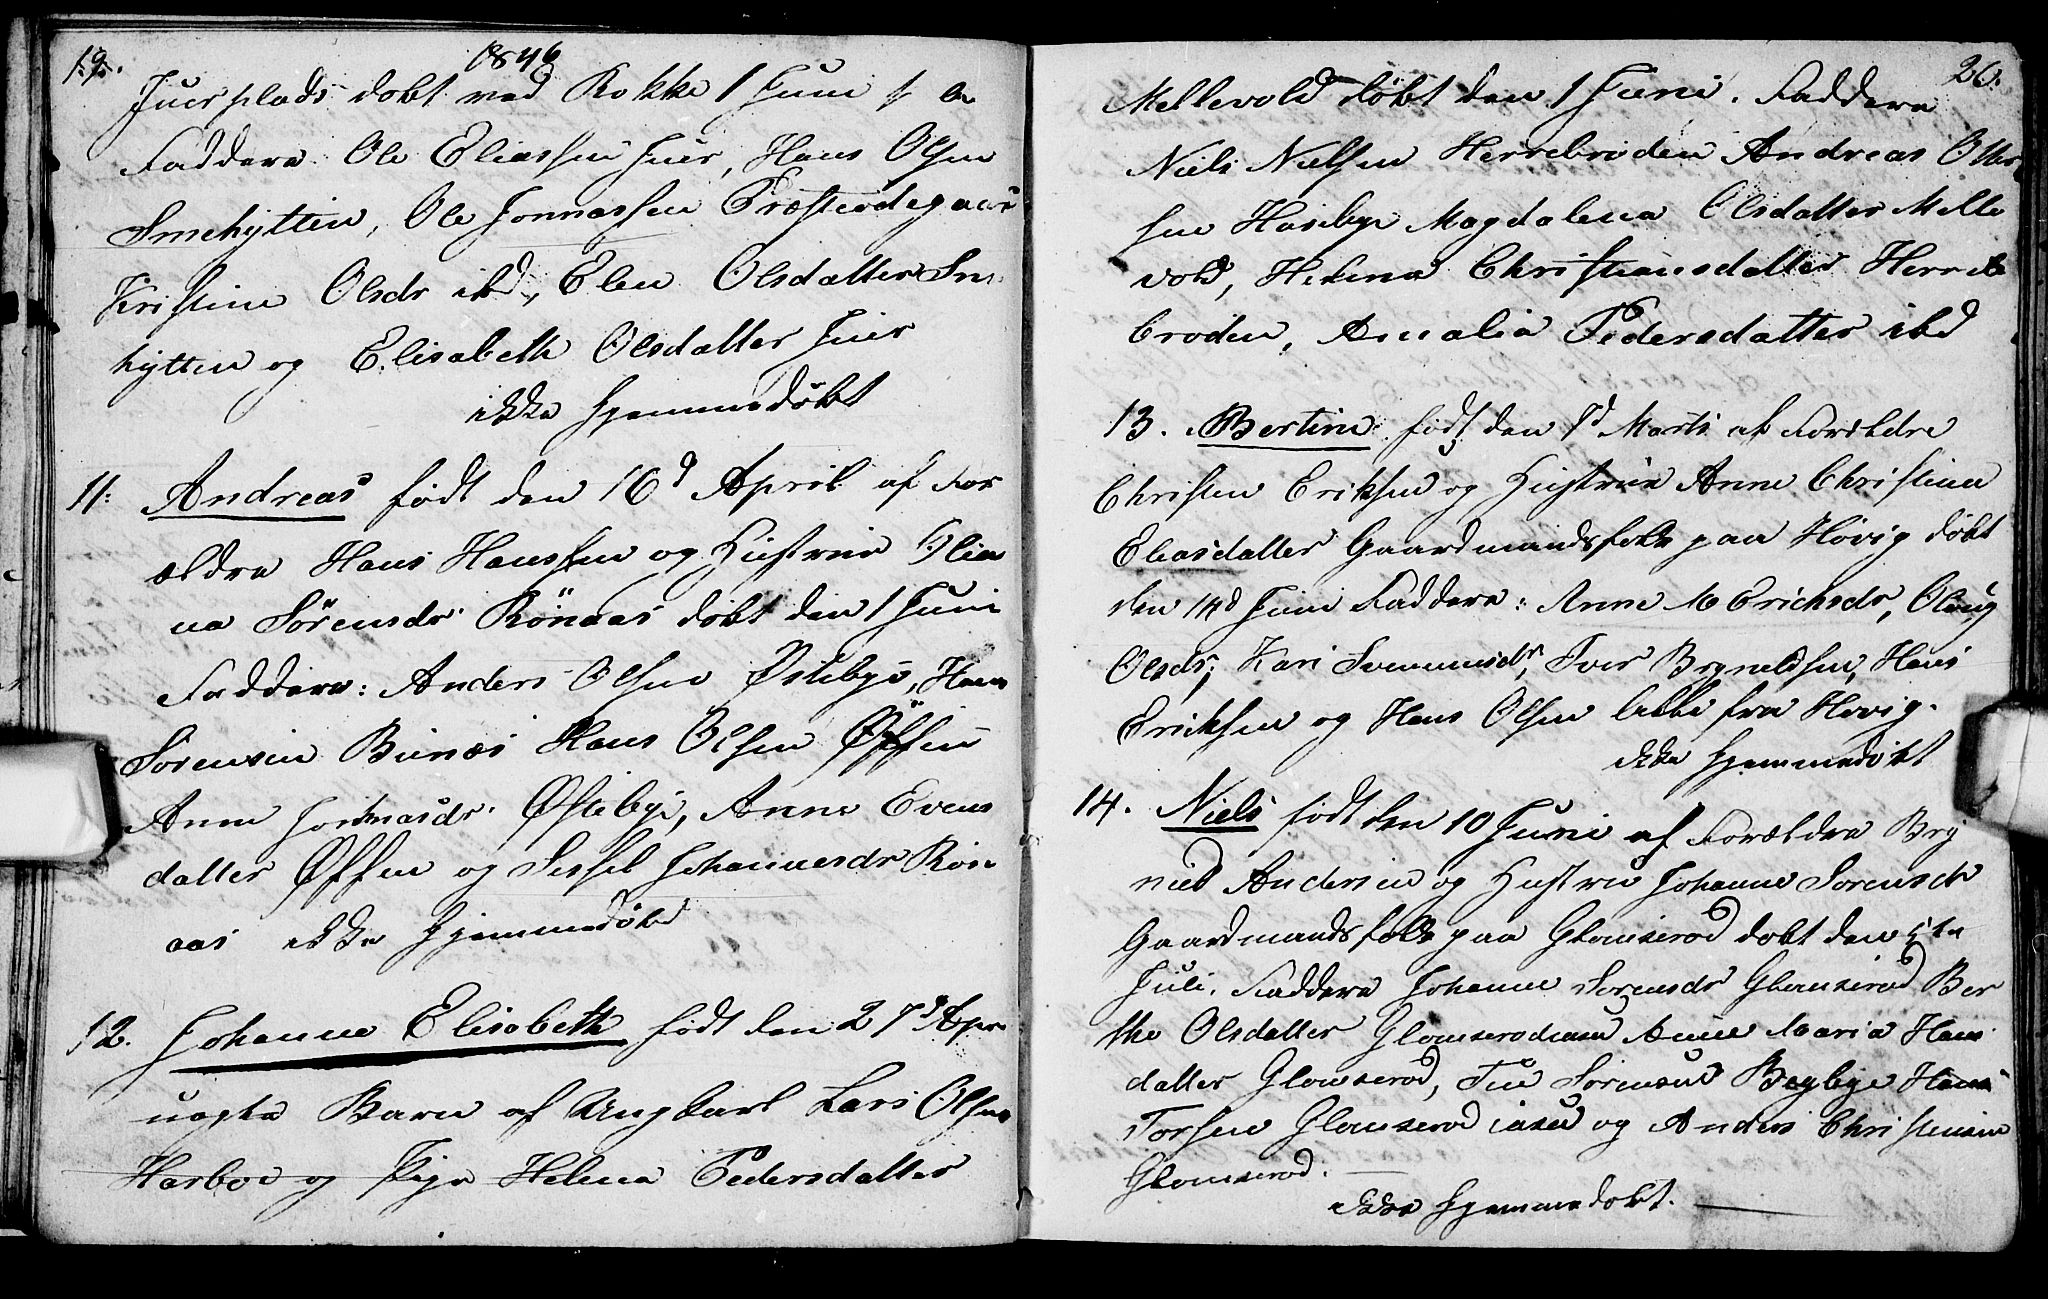 19.
1846
Juerplads døbt ved Rokke 1 Juni
Faddere Ole Eliassen Juer, Hans Olsen
Smehytten, Ole Jonnassen Præsterødegaard
Kristine Olsdr ibd, Elen Olsdatter Sme
hytten og Elisabeth Olsdatter Juer
ikke hjemmedøbt
11: Andreas født den 16d April af For
ældre Hans Hanssen og Hustrue Olia
na Sørensdr Rönaas døbt den 1 Juni
Faddere: Anders Olsen Østebye, Hans
Sørensen Bunæs Hans Olsen Øffsen
Anne Jonnasdr Østebye, Anne Evens
datter Øffsen og Sissel Johannesdr Rön
aas ikke hjemmedøbt
12. Johanne Elisabeth født den 27d Apr
uægte Barn af Ungkarl Lars Olsen
Harboe og Pige Helene Pedersdatter
20.
Mellevold døbt den 1 Juni. Faddere
Niels Nielsen Herrebrøden Andreas Otter
sen Haseby Magdalena Olsdatter Melle
vold, Helena Christiansdatter Herre
brøden, Amalia Pedersdatter ibd
13. Bertine født den 1d Marts af Forældre
Christen Eriksen og Hustrue Anne Christine
Eliasdatter Gaardmandsfolk paa Høvig døbt
den 14d Juni Faddere: Anne M Erichsdr, Olaug
Olsdr, Kari Svennunsdr, Iver Bryneldsen, Hans
Eriksen og Hans Olsen alle fra Høvig.
ikke hjemmedøbt
14. Niels født den 10 Juni af Forældre Bry
nild Andersen og Hustrue Johanne Sørensdr
Gaardmandsfolk paa Glomserød døbt den 5te
Juli. Faddere Johanne Sørensdr Glomserød Ber
the Olsdatter Glomserødeien Anne Maria Hans
datter Glomserød, Sørensen Begbye Hans
Torsen Glomserød og Anders Christensen
Glomserød.
ikke hjemmedøbt.